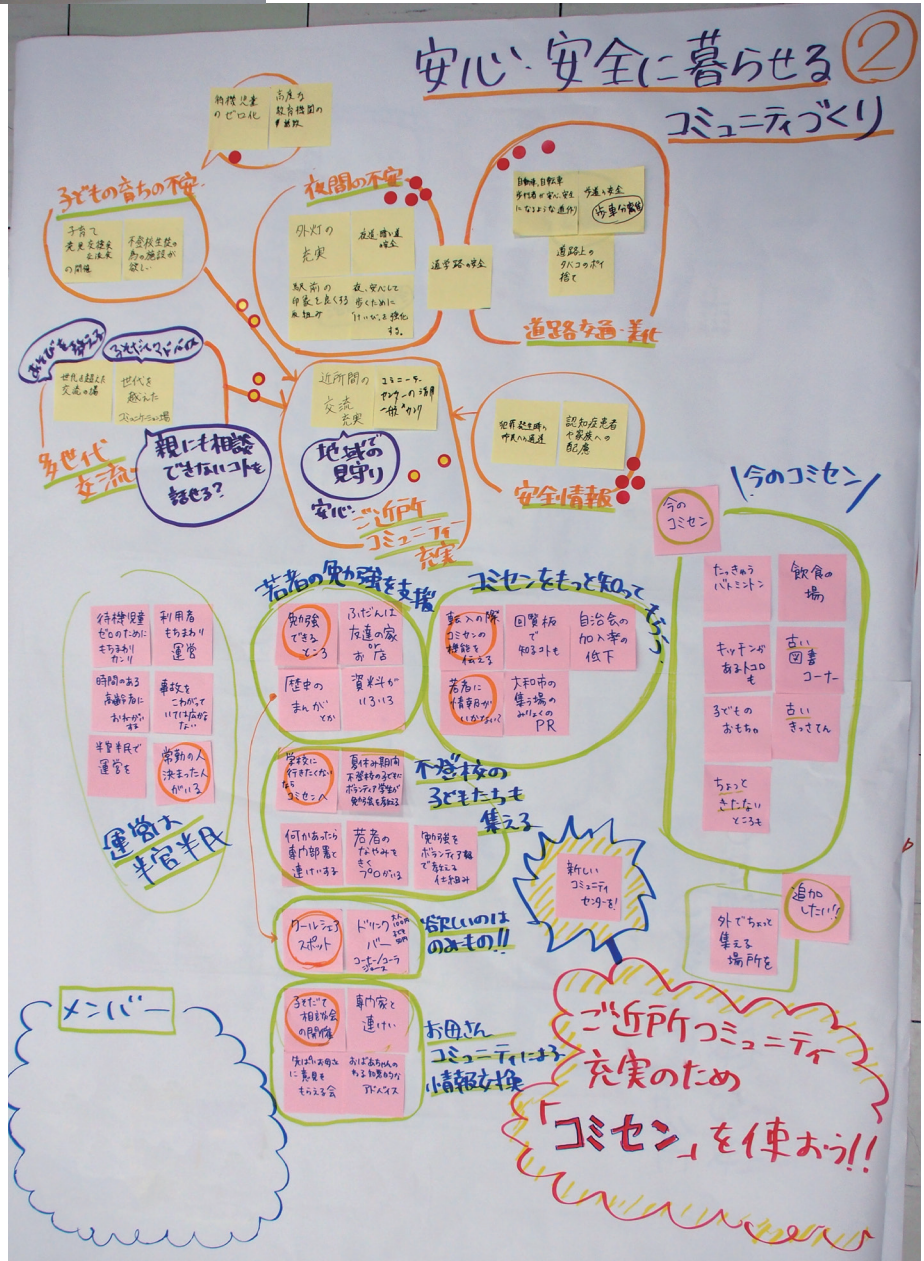 安心・安全に暮らせる ②
コミュニティづくり
待機児童
のゼロ化
高度な
教育機関の
子どもの育ちの不安
子育て
意見交換会
の開催
不登校生徒の
為の施設が
欲しい
夜間の不安
外灯の
充実
夜道、暗い道
の安全
駅前の
印象を良くする
取組み
夜、安心して
歩くために
「けいび」を強化
する。
通学路の安全
自動車、自転車
歩行者が安心、安全
になるような道作り
歩道の安全
歩車分離
道路上の
タバコのポイ
捨て
道路交通・美化
あそびを教える
子そだてアドバイス
世代を超えた
交流の場
世代を
越えた
コミュニケーション場
多世代
交流
親にも相談
できないコトも
話せる?
近所間の
交流
充実
コミュニティ
センターの活用
地域で
見守り
安心
ご近所
コミュニティー
充実
犯罪発生時の
市民への通達
認知症患者
や家族への
配慮
安全情報
今のコミセン
今の
コミセン
たっきゅう
バトミントン
飲食の
場
キッチンが
あるトコロ
も
古い
図書
コーナー
子どもの
おもちゃ
古い
きっさてん
ちょっと
きたない
ところも
追加
したい!!
外でちょっと
集える
場所を
待機児童
ゼロのために
もちまわり
カンリ
利用者
もちまわり
運営
時間のある
高齢者に
おねがい
する
事故を
こわがって
いては広がら
ない
半官半民で
運営を
常勤の人
決まった人
がいる
運営は
半官半民
若者の勉強を支援
勉強
できる
ところ
ふだんは
友達の家
or
お店
歴史の
まんが
とか
資料が
いろいろ
コミセンをもっと知ってもらう
転入の際
コミセンの
機能を
伝える
回覧板
で
知るコトも
自治会の
加入率の
低下
若者に
情報が
いかない?
大和市の
集う場の
みりょくの
PR
学校に
行きたくない
なら
コミセンへ
夏休み期間
不登校の子どもに
ボランティア学生が
勉強を教える
不登校の
子どもたちも
集える
何かあったら
専門部署と
連けいする
若者の
なやみを
きく
プロがいる
勉強を
ボランティア
で教える
仕組み
クールシェア
スポット
ドリンク
バー
コーヒー/コーラ
ジュース
欲しいのは
のみもの!!
子そだて
相談会
の開催
専門家と
連けい
先ぱいお母さん
に意見を
もらえる会
おばあちゃんの
ある知恵的な
アドバイス
お母さん
コミュニティによる
情報交換
新しい
コミュニティ
センターを!
メンバー
ご近所コミュニティ
充実のため
「コミセン」を使おう!!